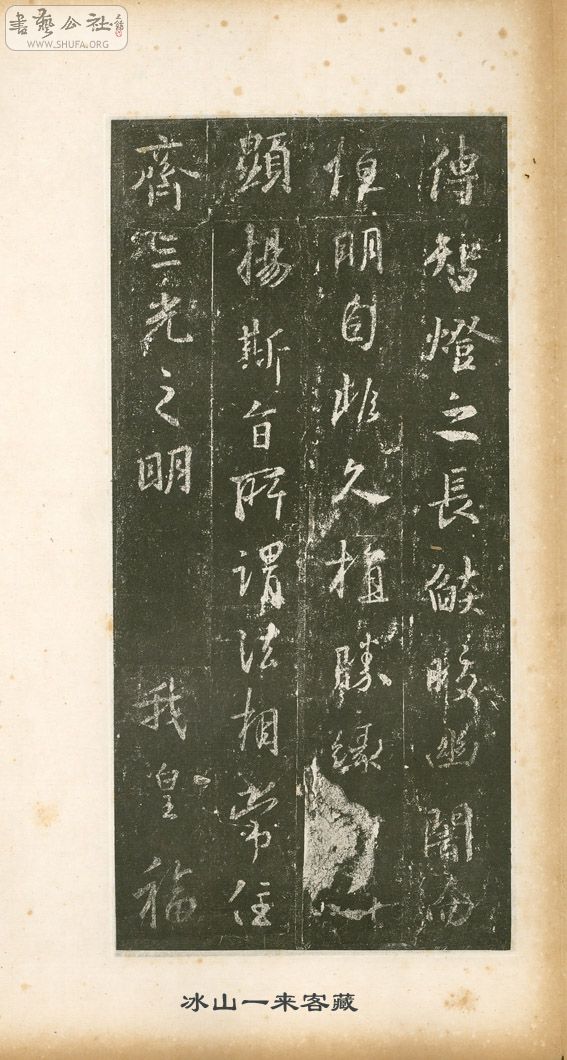 書藝公社
WWW.SHUFA.ORG
傳智燈之長焰皎幽闇而
恒明自非久植勝緣
顯揚斯旨所謂法相常住
齊三光之明 我皇福
冰山一来客藏